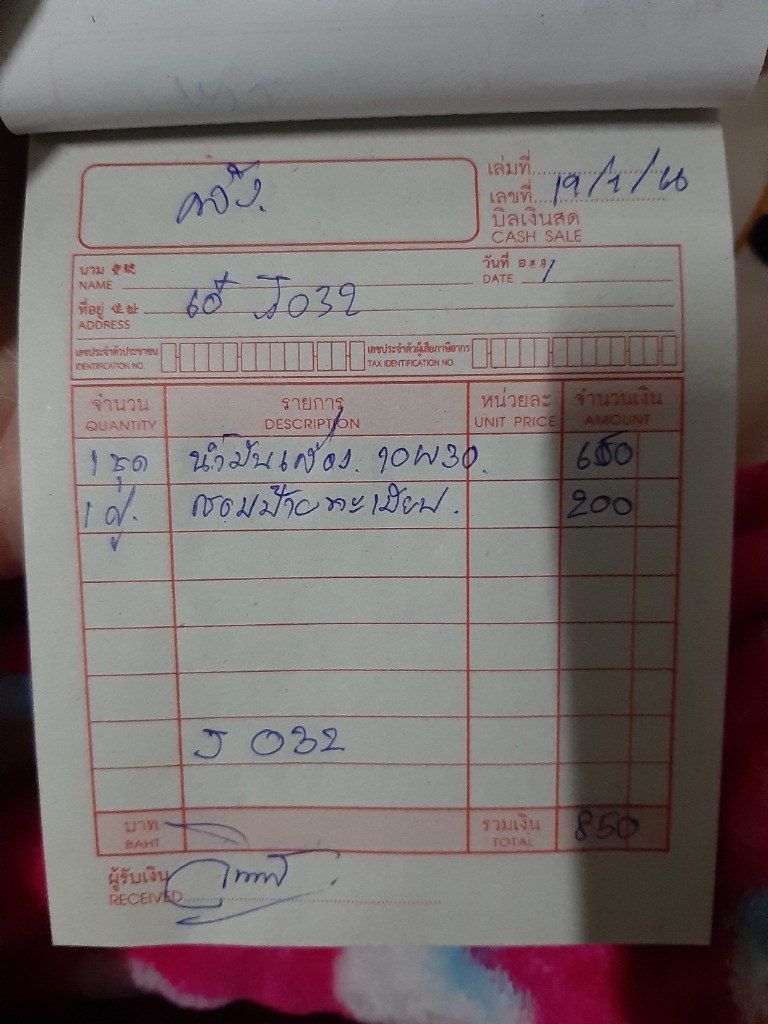 เล่มที่
เลขที่ 19/7/66
บิลเงินสด
CASH SALE
นาม
NAME
วันที่
DATE
ที่อยู่ 032
ADDRESS
เลขประจำตัวประชาชน เลขประจำตัวผู้เสียภาษีอากร
IDENTIFICATION NO. TAX IDENTIFICATION NO.
จำนวน รายการ หน่วยละ จำนวนเงิน
QUANTITY DESCRIPTION UNIT PRICE AMOUNT
1 ชุด น้ำมันเครื่อง 10W30. 650
1 คู่. ป้ายทะเบียน. 200
032
บาท รวมเงิน 850
BAHT TOTAL
ผู้รับเงิน
RECEIVED